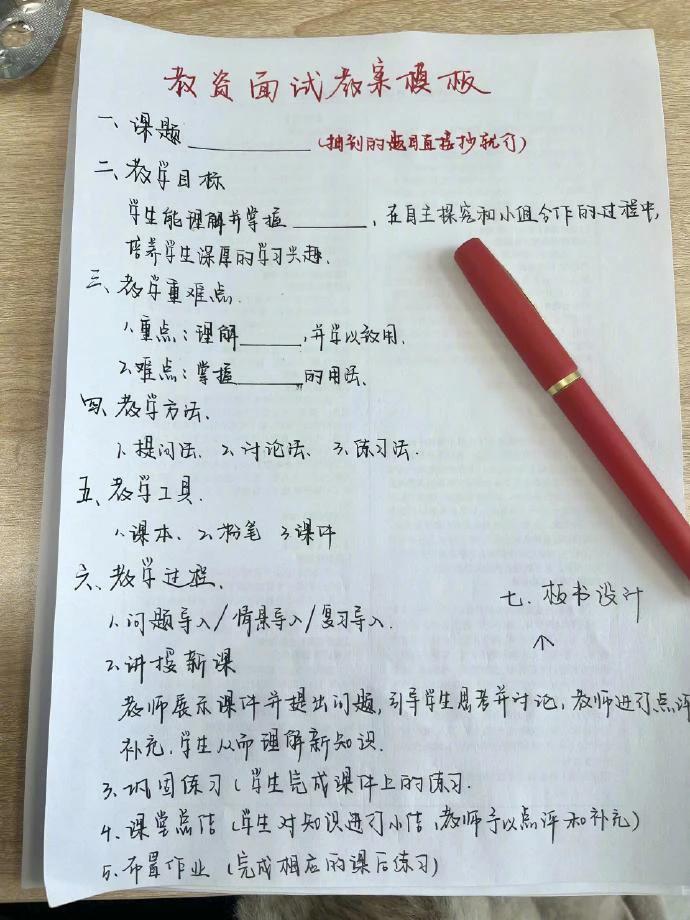 教资面试教案模板
一、课题 ________ (抽到的题目直接抄就行)
二、教学目标
学生能理解并掌握______,在自主探究和小组合作的过程中,
培养学生深厚的学习兴趣.
三、教学重难点.
1.重点:理解_____,并学以致用.
2.难点:掌握_____的用法.
四、教学方法.
1.提问法、2.讨论法、3.练习法.
五、教学工具.
1.课本、2.粉笔 3.课件
六、教学过程.
七、板书设计
1.问题导入/情景导入/复习导入.
2.讲授新课
教师展示课件并提出问题,引导学生思考并讨论,教师进行点评
补充,学生从而理解新知识.
3.巩固练习(学生完成课件上的练习.
4.课堂总结(学生对知识进行小结,教师予以点评和补充)
5.布置作业(完成相应的课后练习)